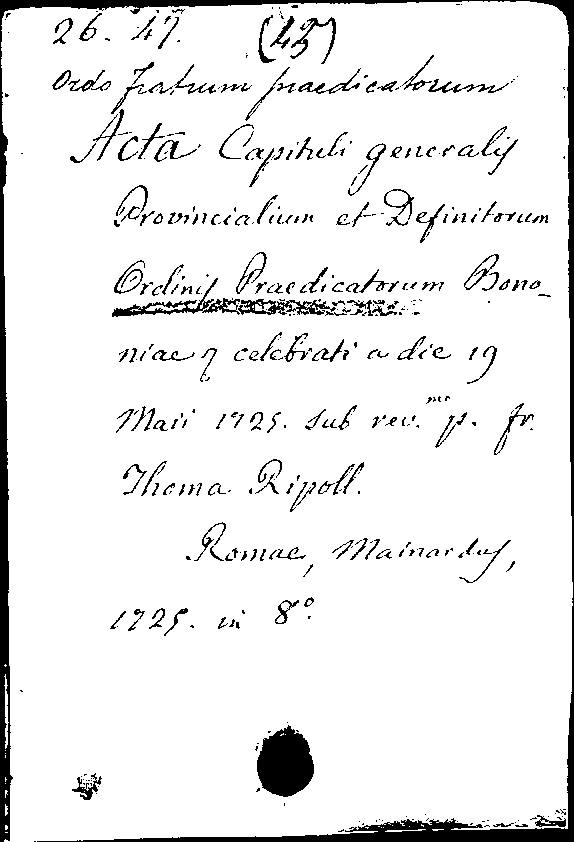 26. 47. (45)
Ordo fratrum praedicatorum
Acta Capituli generalis
Provincialium et Definitorum
Ordinis Praedicatorum Bono-
niae celebrati a die 19
Maii 1725. sub rev.mo p. fr.
Thoma Ripoll.
Romae, Mainardus,
1725. in 8°.